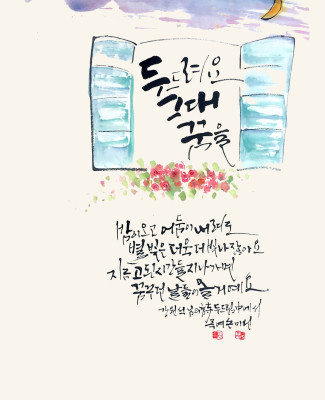 두드려요
그대
꿈을
밤이 오고 어둠이 내려도
별빛은 더욱 더 빛나잖아요
지금 고된 시간들 지나가면
꿈꾸던 날들이 올 거예요